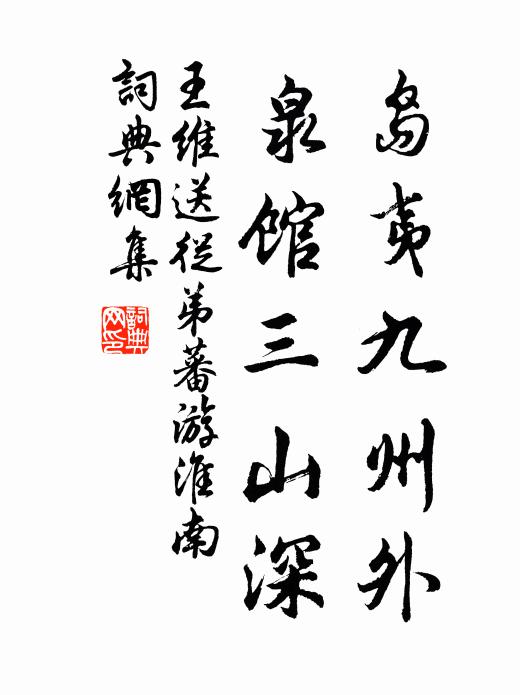 岛夷九州外
泉馆三山深
王維送從弟蕃游淮南
詞典網集
詞典网印